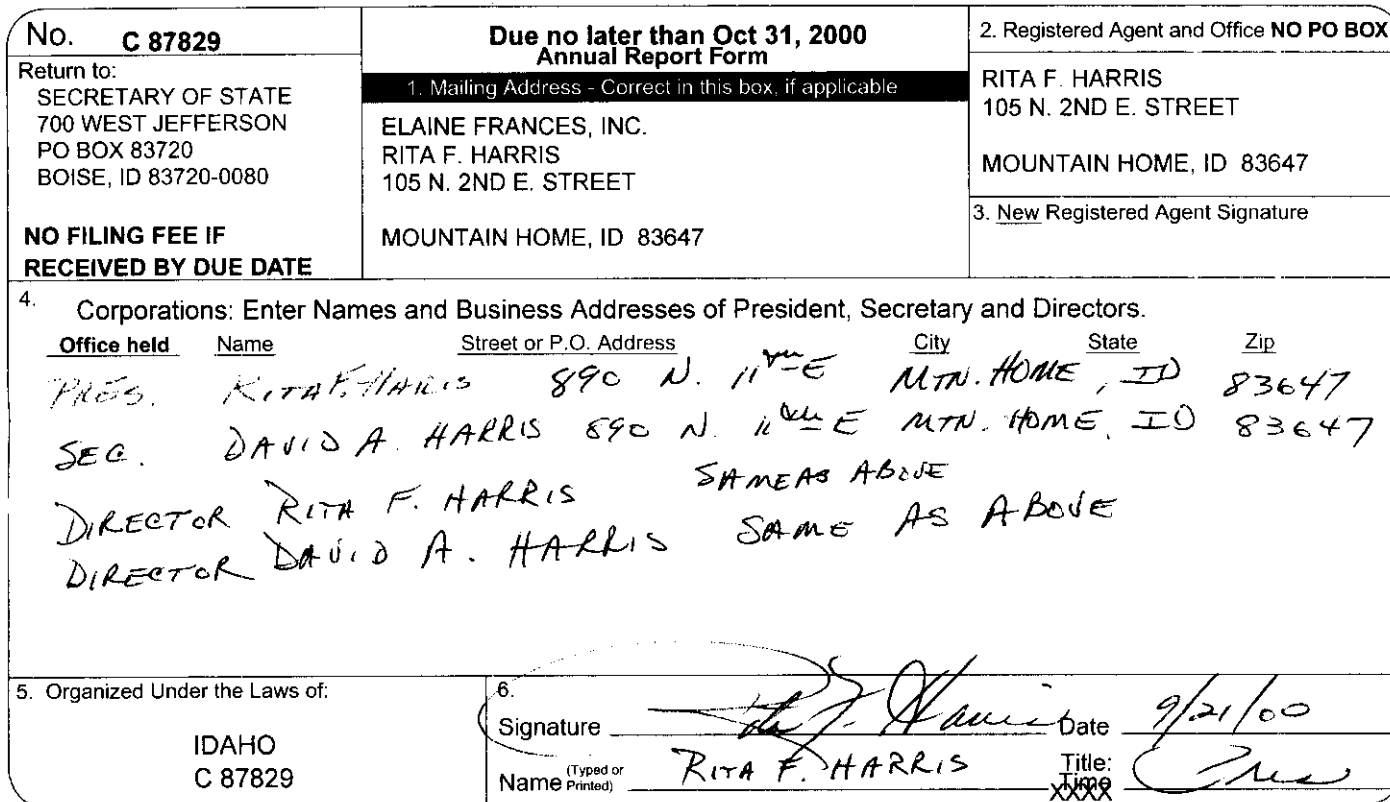 No. C 87829
Return to:
SECRETARY OF STATE
700 WEST JEFFERSON
PO BOX 83720
BOISE, ID 83720-0080
NO FILING FEE IF
RECEIVED BY DUE DATE
Due no later than Oct 31, 2000
Annual Report Form
1. Mailing Address - Correct in this box, if applicable
ELAINE FRANCES, INC.
RITA F. HARRIS
105 N. 2ND E. STREET
MOUNTAIN HOME, ID 83647
2. Registered Agent and Office NO PO BOX
RITA F. HARRIS
105 N. 2ND E. STREET
MOUNTAIN HOME, ID 83647
3. New Registered Agent Signature
4. Corporations: Enter Names and Business Addresses of President, Secretary and Directors.
Office held Name Street or P.O. Address City State Zip
PRES. RITA F. HARIS 890 N. 11th E MTN. HOME, ID 83647
SEC. DAVID A. HARRIS 890 N. 11th E MTN. HOME, ID 83647
DIRECTOR RITA F. HARRIS SAME AS ABOVE
DIRECTOR DAVID A. HARRIS SAME AS ABOVE
5. Organized Under the Laws of:
IDAHO
C 87829
6.
Signature Rita F. Harris Date 9/21/00
Name (Typed or Printed) RITA F. HARRIS Title: Pres
XXXX